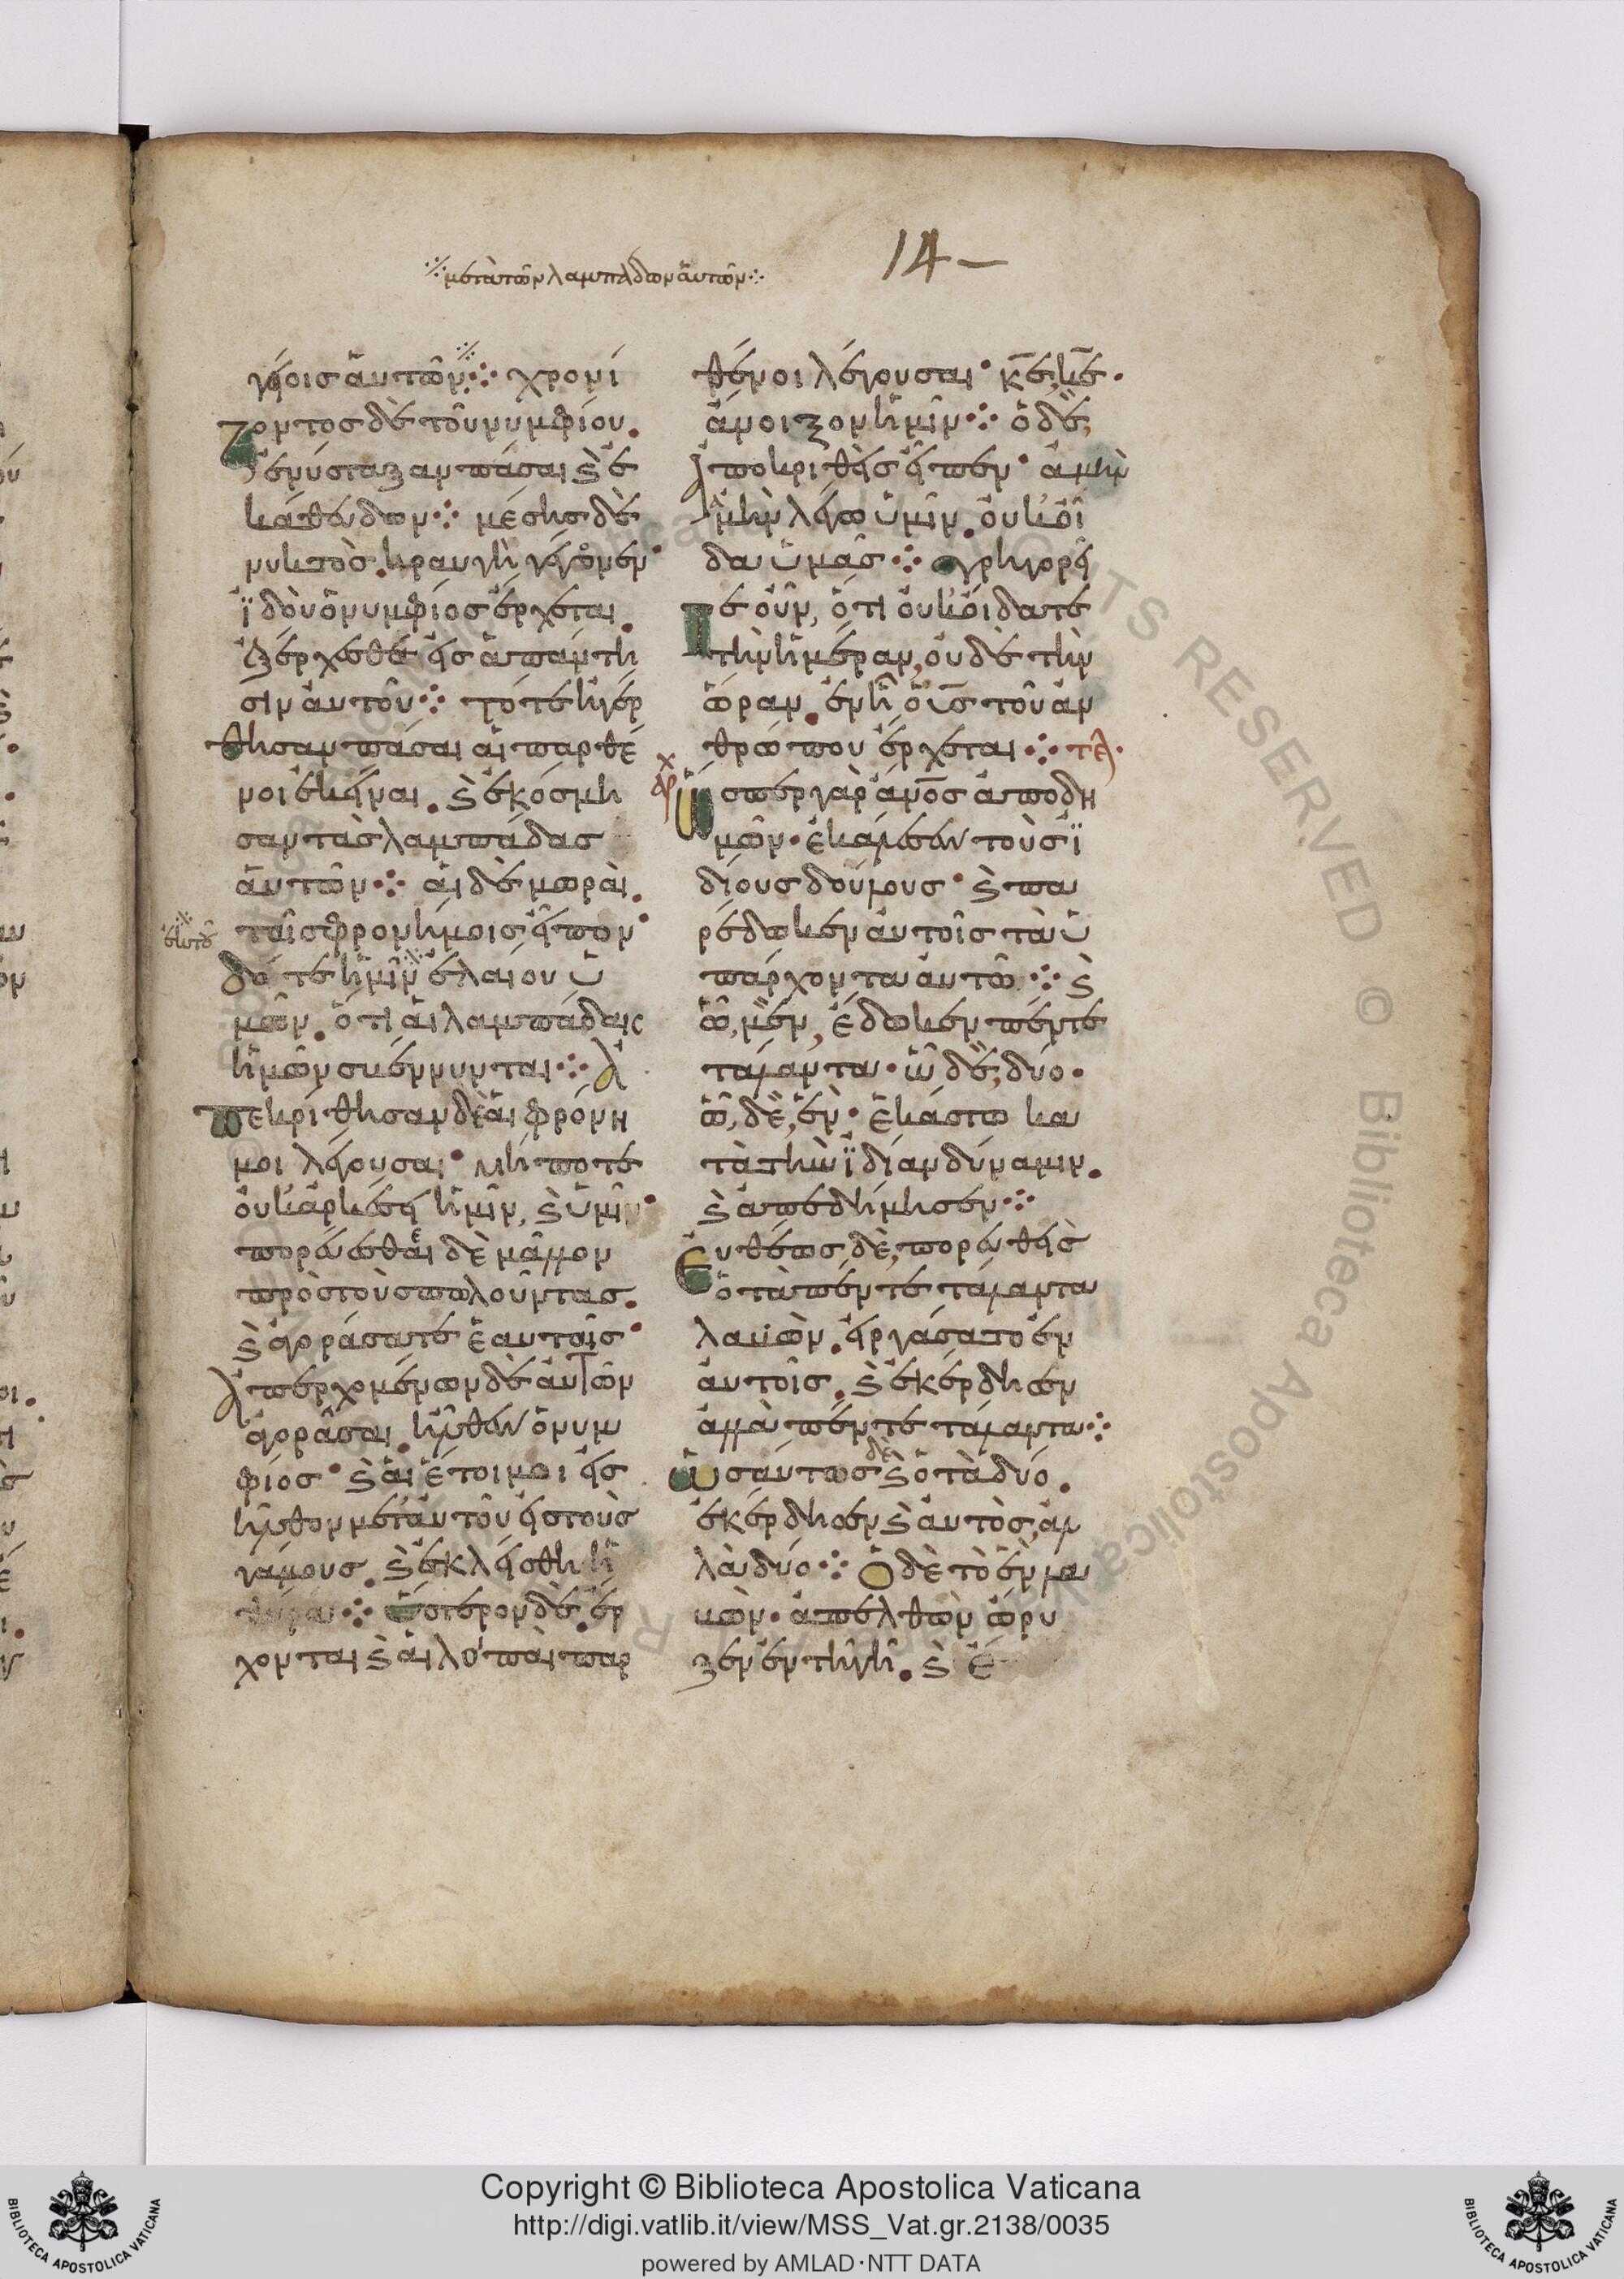 14
⁜ μετὰ τῶν λαμπάδων αὐτῶν ⁘
γείοις αὐτῶν ⁘ χρονί
ζοντος δὲ τοῦ νυμφίου.
ἐνύσταξαν πᾶσαι ϗ ἐ
κάθευδον ⁘ μέσης δὲ
νυκτὸς. κραυγὴ γέγονεν·
ἰδοὺ ὁ νυμφίος ἔρχεται.
ἐξέρχεσθε εἰς ἀπάντη
σιν αὐτοῦ ⁘ τότε ἠγέρ
θησαν πᾶσαι αἱ παρθέ
νοι ἐκεῖναι. ϗ ἐκόσμη
σαν τὰς λαμπάδας
αὐτῶν ⁘ αἱ δὲ μωραὶ.
ταῖς φρονήμοις εἶπον·
δότε ἡμῖν ἐλαιον ὑ
μῶν. ὅτι αἱ λαμπάδαις
ἡμῶν σβέννυνται ⁘ ἀ
πεκρίθησαν δὲ αἱ φρόνη
μοι λέγουσαι· μήποτε
οὐκ ἀρκέσει ἡμῖν, ϗ ὑμῖν·
πορεύεσθαι δὲ μᾶλλον
πρὸς τοὺς πωλοῦντας.
ϗ ἀγοράσατε ἑαυταῖς·
Ἀπερχομένων δὲ αὐτῶν
ἀγορᾶσαι. ἦλθεν ὁ νυμ
φίος· ϗ αἱ ἕτοιμοι εἰσ
ῆλθον μετ' αὐτοῦ εἰς τοὺς
γάμους. ϗ ἐκλείσθη ἡ
θύρα ⁘ ὕστερον δὲ. ἔρ
χονται ϗ αἱ λοιπαὶ παρ
θένοι λέγουσαι· κ̅ε̅ κ̅ε̅·
ἄνοιξον ἡμῖν ⁘ ὁ δὲ,
ἀποκριθεὶς εἶπεν· ἀμὴν
ἀμὴν λέγω ὑμῖν. οὐκ οἶ
δα ὑμᾶς ⁘ γρηγορεῖ
τε οὖν, ὅτι οὐκ οἴδατε
τὴν ἡμέραν, οὐδὲ τὴν
ὥραν. ἐν ᾗ ὁ υ̅ς̅ τοῦ ἀν
θρώπου ἔρχεται ⁘ τελ·
ἀρχ
Ὥσπερ γὰρ α̅ν̅ο̅ς̅ ἀποδη
μῶν· ἐκάλεσεν τοὺς ἰ
δίους δούλους· ϗ πα
ρέδωκεν αὐτοῖς τὰ ὑ
πάρχοντα αὐτῶ ⁘ ϗ
ᾧ, μὲν, ἔδωκεν πέντε
τάλαντα· ᾧ δὲ, δύο·
ᾧ, δὲ, ἓν· ἑκάστω κα
τὰ τὴν ἰδίαν δύναμιν.
ϗ ἀπεδήμησεν ⁘
Εὐθέως, δὲ, πορευθεὶς
ὁ τὰ πέντε τάλαντα
λαβὼν. εἰργάσατο ἐν
αὐτοῖς. ϗ ἐκέρδησεν
ἄλλα πέντε τάλαντα ⁘
ὡσαύτως δὲ ϗ ὁ τὰ δύο.
ἐκέρδησεν ϗ αὐτὸς, ἄλ
λα δύο ⁘ ὁ δὲ τὸ ἓν λα
βὼν· ἀπελθὼν ὤρυ
ξεν ἐν τῆ γῆ. ϗ ἔ
Copyright © Biblioteca Apostolica Vaticana
http://digi.vatlib.it/view/MSS_Vat.gr.2138/0035
powered by AMLAD·NTT DATA
BIBLIOTECA APOSTOLICA VATICANA
BIBLIOTECA APOSTOLICA VATICANA